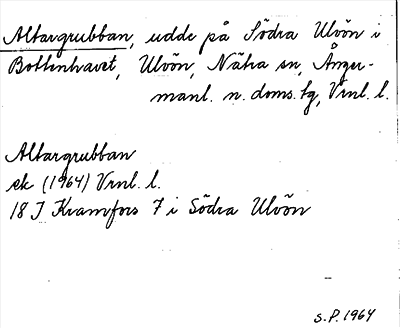 Altargrubban, udde på Södra Ulvön i
Bottenhavet, Ulvön, Nätra sn, Ånger-
manl. n. doms. tg, Vrnl. l.
Altargrubban
ek (1964) Vrnl. l.
18 J Kramfors 7 i Södra Ulvön
S.P. 1964